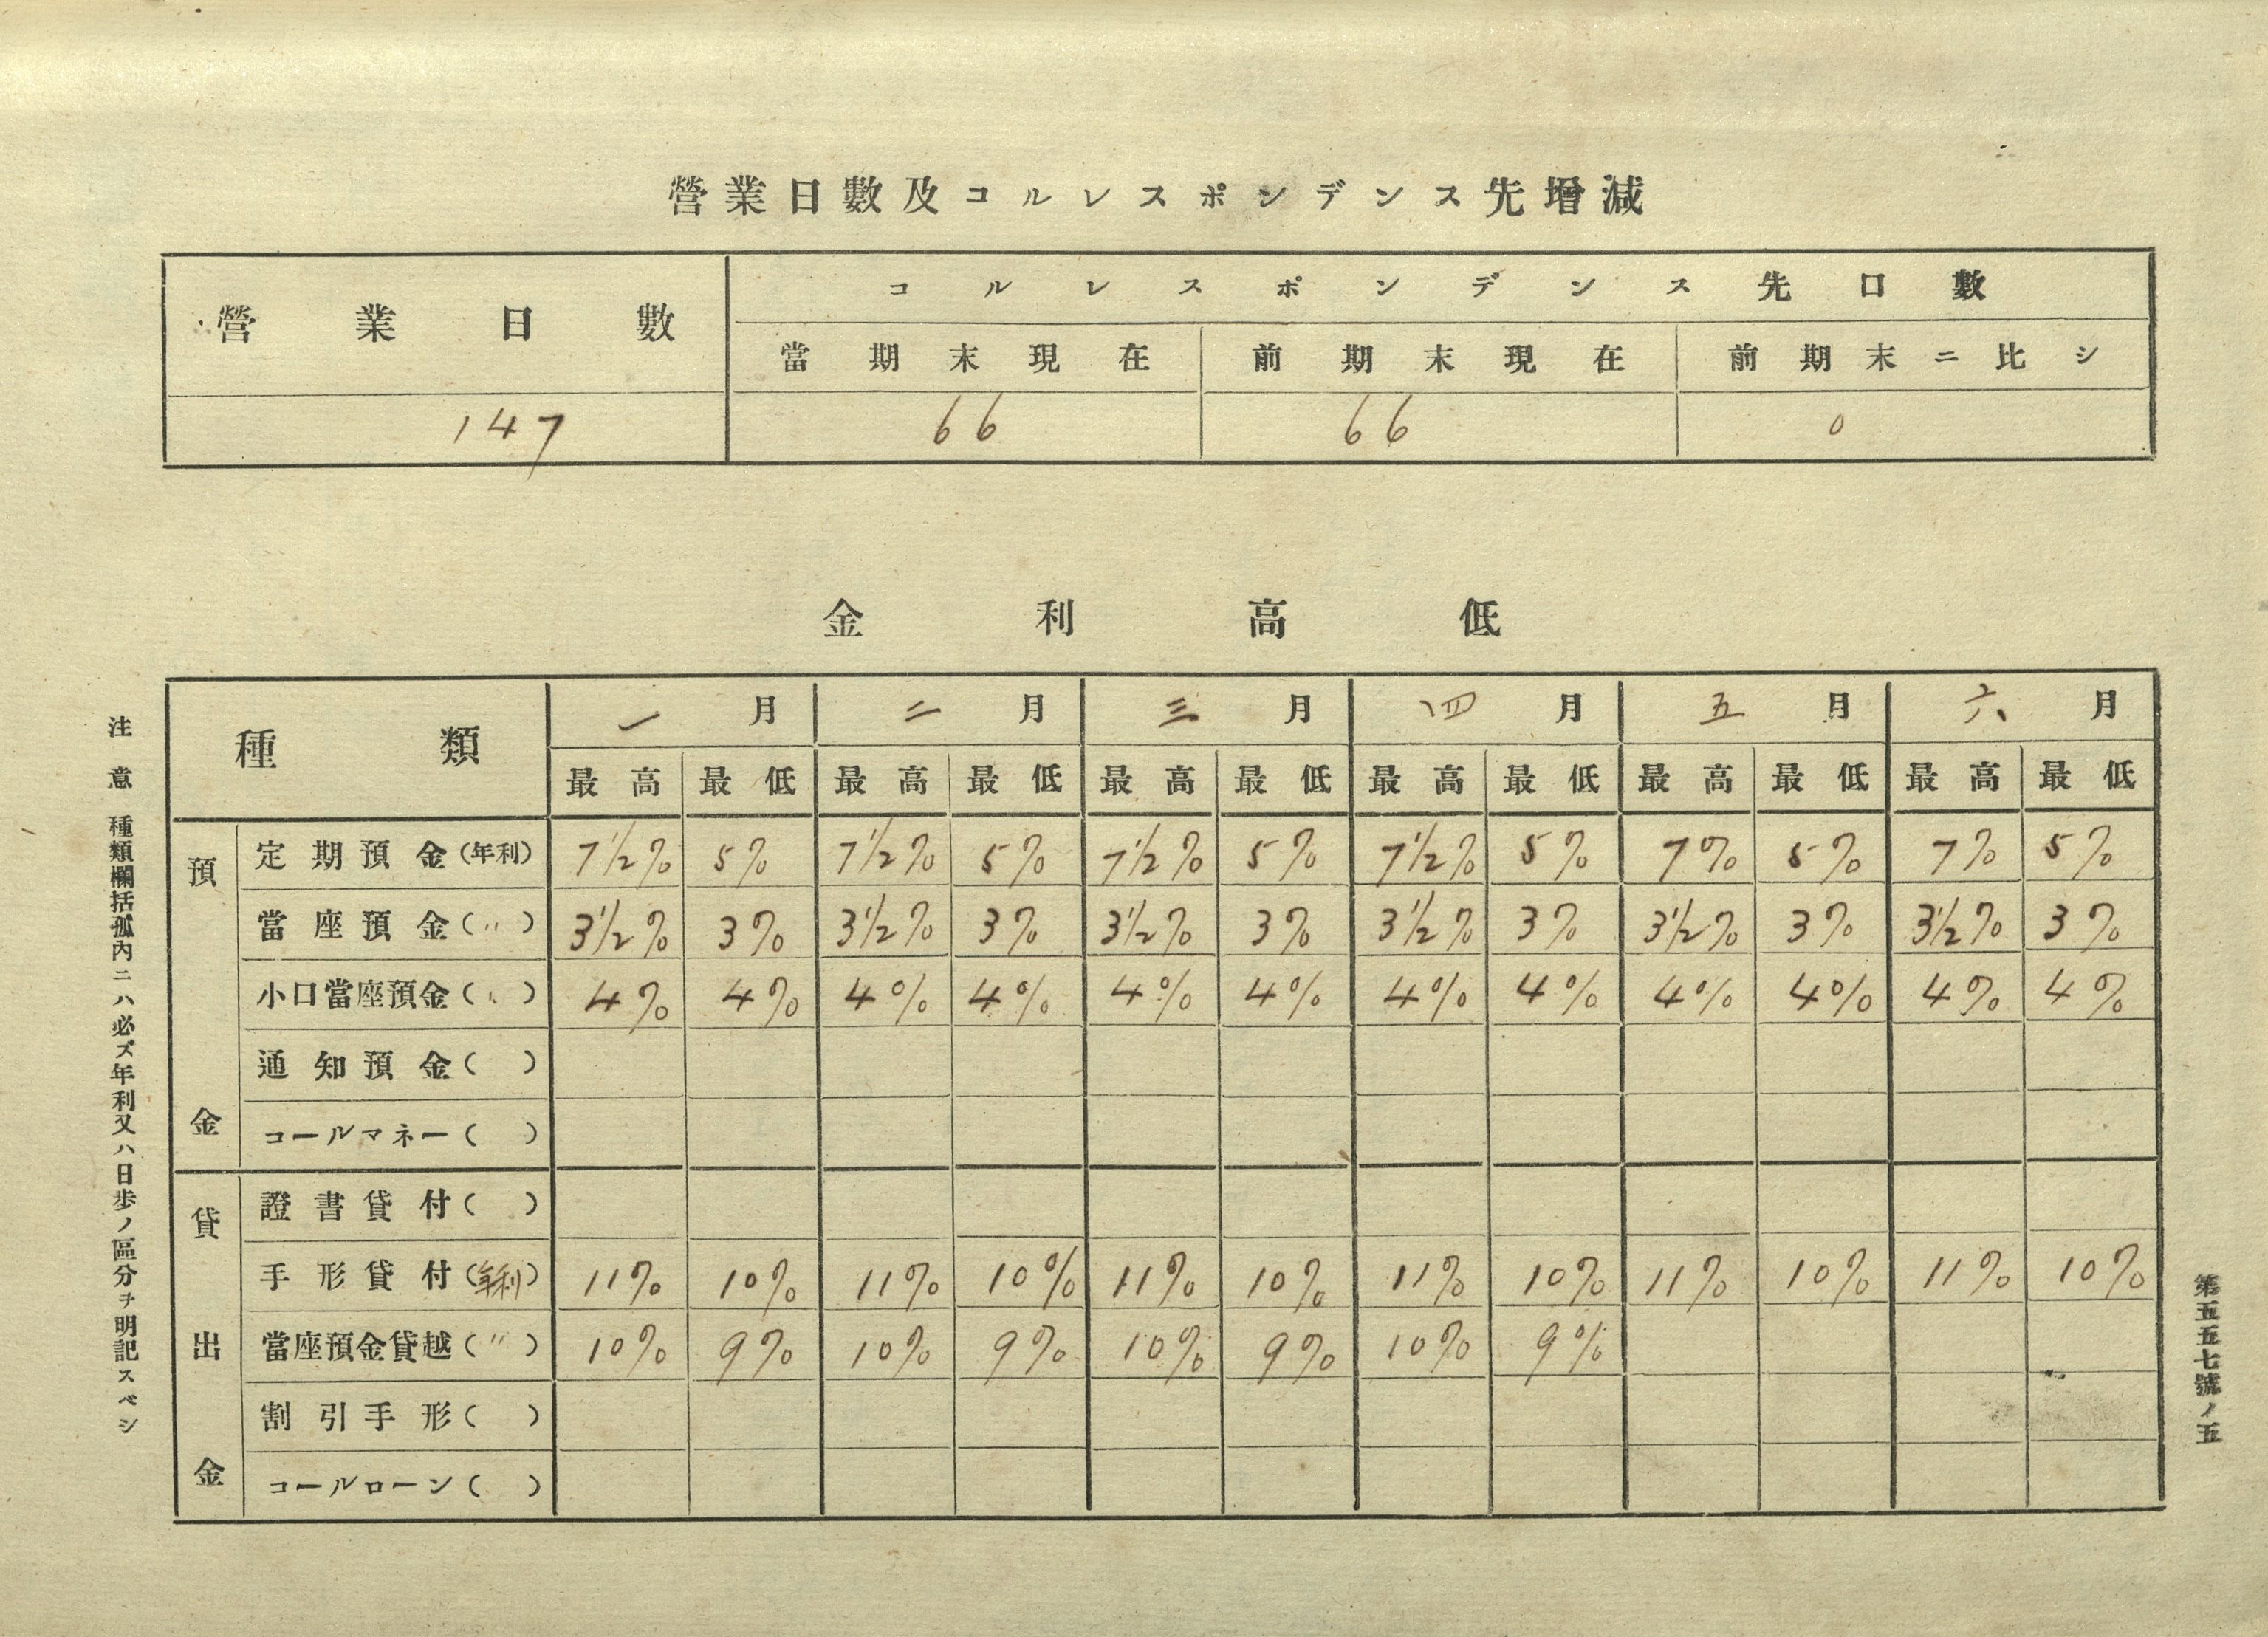 營業日數及コルレスポンデンス先增減
營業日數 コルレスポンデンス先口數
當期末現在 前期末現在 前期末ニ比シ
147 66 66 0
金利高低
種類 一月 二月 三月 四月 五月 六月
最高 最低 最高 最低 最高 最低 最高 最低 最高 最低 最高 最低
預金
定期預金(年利) 7½% 5% 7½% 5% 7½% 5% 7½% 5% 7% 5% 7% 5%
當座預金(〃) 3½% 3% 3½% 3% 3½% 3% 3½% 3% 3½% 3% 3½% 3%
小口當座預金(〃) 4% 4% 4% 4% 4% 4% 4% 4% 4% 4% 4% 4%
通知預金( )
コールマネー( )
貸出金
證書貸付( )
手形貸付(年利) 11% 10% 11% 10% 11% 10% 11% 10% 11% 10% 11% 10%
當座預金貸越(〃) 10% 9% 10% 9% 10% 9% 10% 9%
割引手形( )
コールローン( )
注意 種類欄括孤內ニハ必ズ年利又ハ日歩ノ區分ヲ明記スベシ
第五五七號ノ五